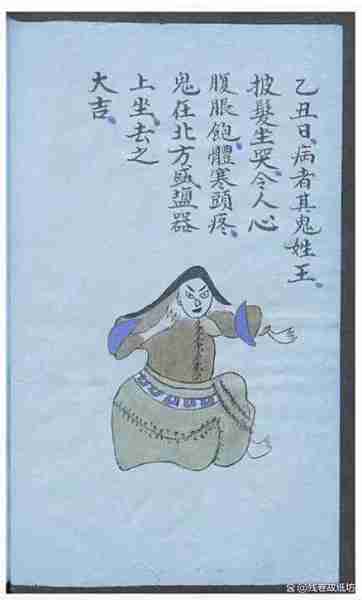 乙丑日、病者其鬼姓王、
披髮坐哭、令人心
腹脹飽、體寒頭疼、
鬼在北方盛鹽器
上坐、去之
大吉、
@残卷故纸坊